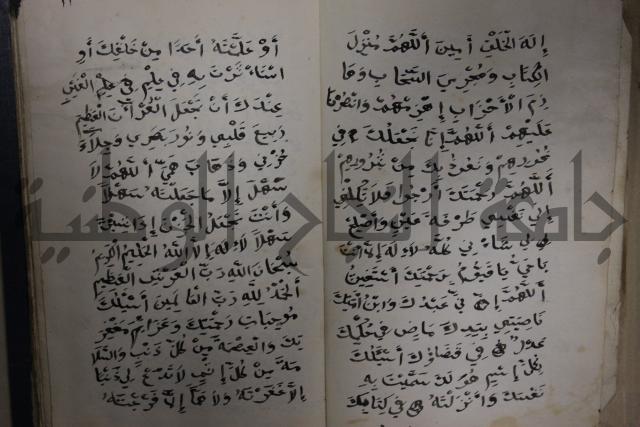 إله الخلق آمين اللهم منزل
الكتاب ومجري السحاب وها
زم الأحزاب إهزمهم وانصرنا
عليهم اللهم إنا نجعلك في
نحورهم ونعوذ بك من شرورهم
اللهم رحمتك أرجو فلا تكلني
إلى نفسي طرفة عين وأصلح
لي شأني كله لا إله إلا أنت
يا حي يا قيوم برحمتك أستغيث
اللهم إني عبدك وابن أمتك
ناصيتي بيدك ماض في حكمك
عدل في قضاؤك أسئلك
بكل إسم هو لك سميت به
نفسك وأنزلته في كتابك
أو علمته أحدا من خلقك أو
استأثرت به في علم الغيب
عندك أن تجعل القرآن العظيم
ربيع قلبي ونور بصري وجلاء
حزني وذهاب همي اللهم لا
سهل إلا ما جعلته سهلا
وأنت تجعل الحزن إذا شئت
سهلا لا إله إلا الله الحليم الكريم
سبحان الله رب العرش العظيم
الحمد لله رب العالمين أسئلك
موجبات رحمتك وعزائم مغفر
تك والعصمة من كل ذنب والسلا
مة من كل إثم لا تدع لي ذنبا
إلا غفرته ولا هما إلا فرجته
جامعة النجاح الوطنية